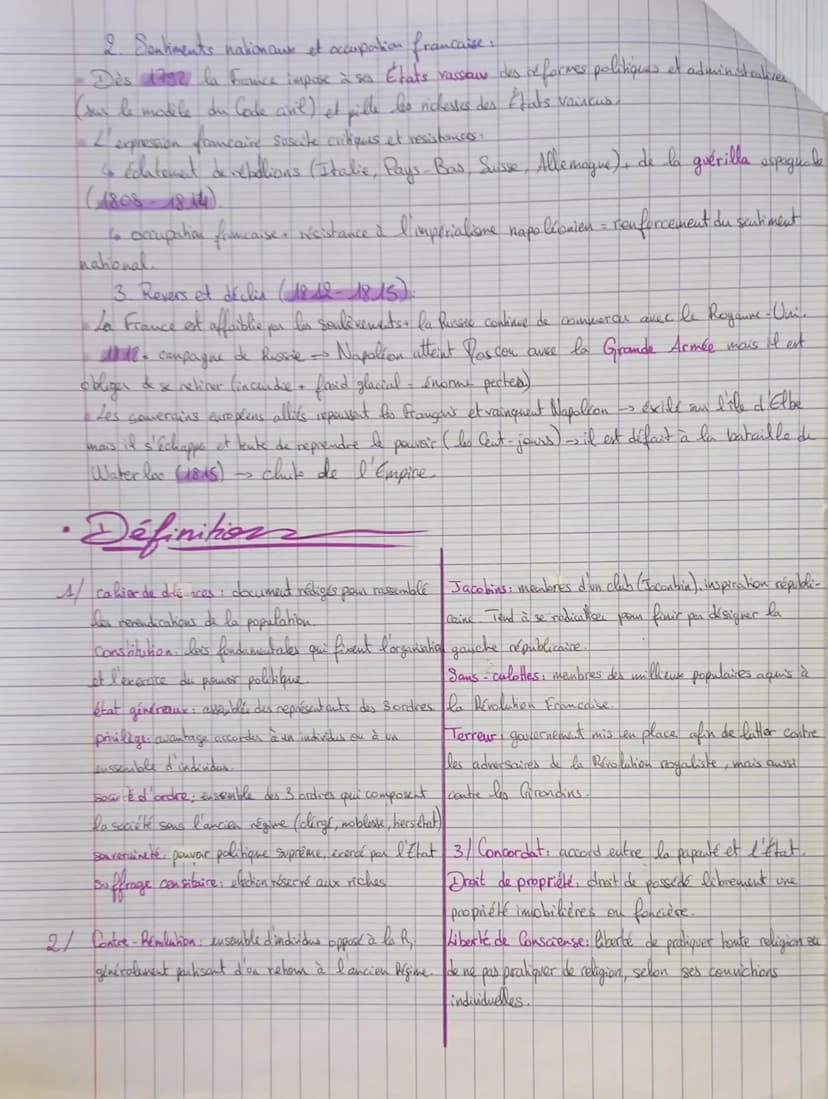 2. Sentiments nationaux et occupation française :
- Dès 1792 la France impose à ses États vassaux des réformes politiques et administratives
(sur le modèle du Code civil) et pille les richesses des États vaincus.
- L'expression française suscite critiques et résistances :
↳ éclatement de rébellions (Italie, Pays-Bas, Suisse, Allemagne) + de la guérilla espagnole
(1808 - 1814)
↳ occupation française + résistance à l'impérialisme napoléonien = renforcement du sentiment
national.
3. Revers et déclin (1812 - 1815) :
- La France est affaiblie par les soulèvements + la Russie continue de commercer avec le Royaume-Uni.
- 1812 : campagne de Russie → Napoléon atteint Moscou avec la Grande Armée mais il est
obliger de se retirer (incendie + froid glacial = énorme pertes)
- Les souverains européens alliés repoussent les français et vainquent Napoléon → éxilé sur l'île d'Elbe
mais il s'échappe et tente de reprendre le pouvoir (les Cent-jours) → il est défait à la bataille de
Waterloo (1815) → chute de l'Empire.
• Définition
1/ cahier de doléances : document rédigés pour rassemblé
les revendications de la population.
Constitution : lois fondamentales qui fixent l'organisation
et l'exercice du pouvoir politique.
état généraux : assemblée des représentants des 3 ordres
privilège : avantage accorder à un individus ou à un
ensemble d'individus.
société d'ordre : ensemble des 3 ordres qui composent
la société sous l'ancien régime (clergé, noblesse, tiers état)
souveraineté : pouvoir politique suprême, exercé par l'État
suffrage censitaire : élection réservé aux riches
2/ Contre-Révolution : ensemble d'individus opposé à la R,
généralement partisant d'un retour à l'ancien Régime.
Jacobins : membres d'un club (Jacobin), inspiration républi-
caine. Tend à se radicaliser pour finir par désigner la
gauche républicaine.
Sans-culottes : membres des milieux populaires aquis à
la Révolution Française.
Terreur : gouvernement mis en place afin de lutter contre
les adversaires de la Révolution royaliste, mais aussi
contre les Girondins.
3/ Concordat : accord entre la papauté et l'État.
Droit de propriété : droit de posséder librement une
propriété immobilières ou foncière.
Liberté de Consciense : liberté de pratiquer toute religion ou
de ne pas pratiquer de religion, selon ses convictions
individuelles.